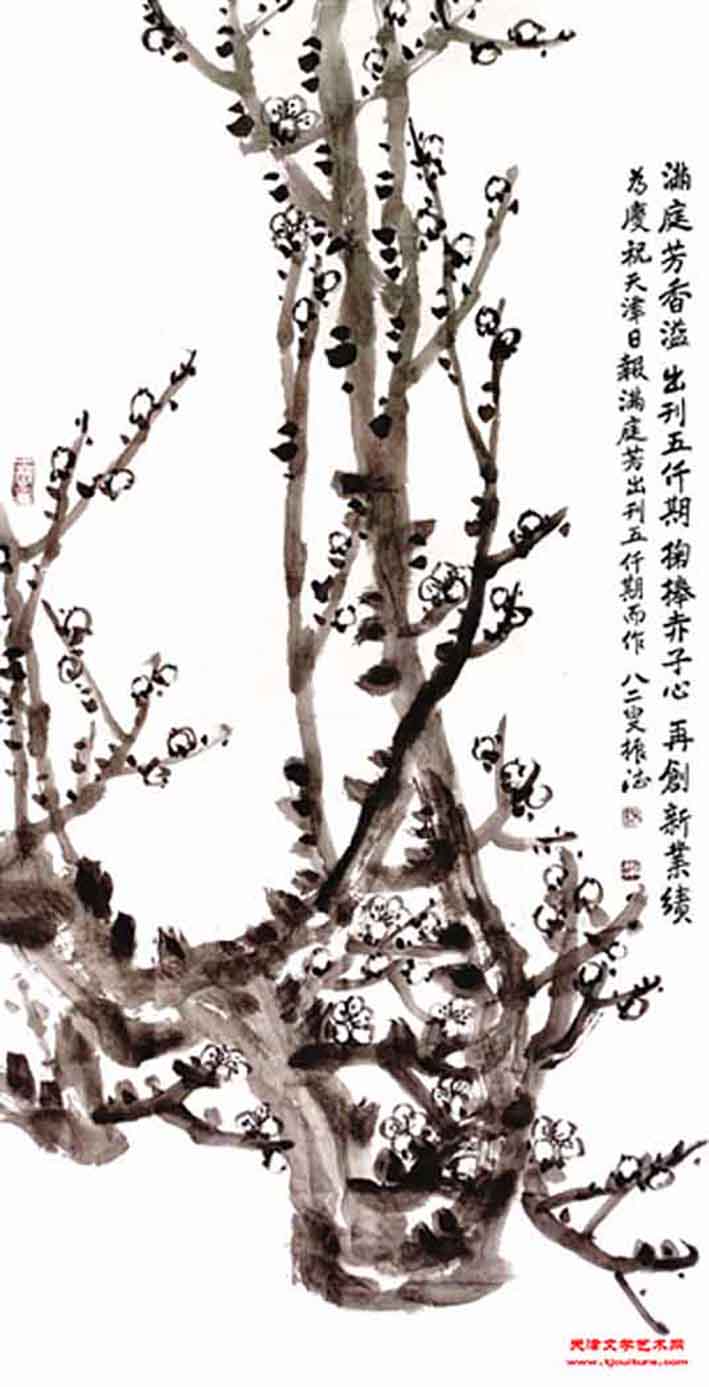 滿庭芳香溢 出刊五仟期 掬捧赤子心 再創新業績
為慶祝天津日報滿庭芳出刊五仟期而作 八二叟振波
天津文学艺术网
www.tjculture.com